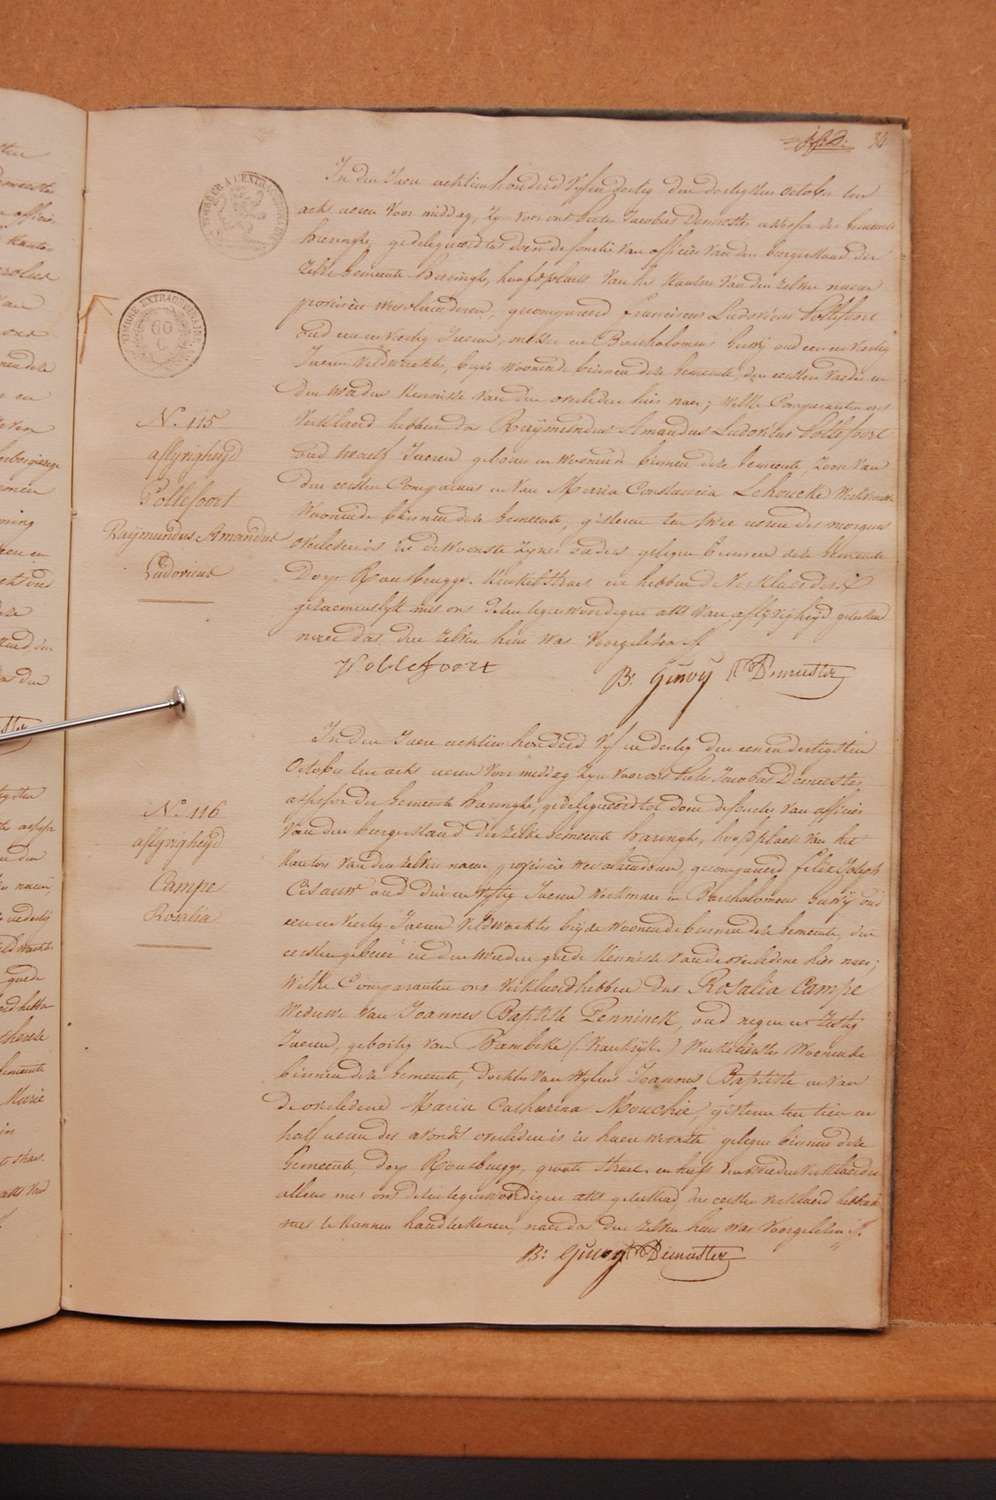 In den Jaere achtien honderd vyf en dertig den dertigsten october ten
acht ueren voor middag, zyn voor ons heere Jacobus Demeester assessor der Gemeente
haringhe, gedelegueerd tot doen de functie van officier van den burgerstand der
zelve Gemeente haringhe, hoofdplaets van het kanton van den zelven naem
provincie westvlaenderen, gecompareerd franciscus Ludovicus Pottefoort
oud een en veertig Jaeren, en Bartholomeus Gurvÿ oud een en veertig
Jaeren Veldwachter, beyde woonende binnen deze Gemeente, den eersten vader en
den tweeden kennisse van den overleden hier naer; welke Comparanten ons
verklaerd hebben dat Raÿmundus Amandus Ludovicus Pottefoort
oud twaelf Jaeren geboren en woonende binnen deze Gemeente, zoon van
den eersten Comparant en van Maria Constancia Lehoucke
woonende binnen deze gemeente, gisteren ten twee ueren des morgens
overleden is in de wooste zyns vaders gelegen binnen deze Gemeente
Dorp Rousbrugge, straet en hebben de Verklaeders
gezaementlyk met ons deze tegenwoordigen akt van aflyvigheyd geteekend
naer dat den zelven hun was voorgelezen
N.º 115
aflyvigheyd
Pottefoort
Raÿmundus Amandus
Ludovicus
Pottefoort B. Gurvÿ Demeester
In den Jaere achtien honderd vyf en dertig den eenendertigsten
October ten acht ueren voor middag zyn voor ons heere Jacobus Demeester
assessor der Gemeente haringhe, gedelegueerd tot doene de functie van officier
van den burgerstand der zelve Gemeente haringhe, hoofdplaets van het
kanton van den zelven naem provincie westvlaenderen, gecompareerd felix Joseph
oud en vyftig Jaeren werkman en Bartholomeus Gurvÿ oud
een en veertig Jaeren Veldwachter beyde woonende binnen deze Gemeente, den
eersten gebuer en den tweeden goede kennisse van de overledene hier naer;
welke Comparanten ons verklaerd hebben dat Rosalia Campe
Weduwe van Joannes Baptiste Penninck, oud negen en zestig
Jaeren, geboortig van Bambeke (Vrankryk) woonende
binnen deze Gemeente, dochter van wylen Joannes Baptiste en van
de overledene Maria Catharina Mouchie, gisteren ten tien en
half ueren des avonds overleden is in haere wooste gelegen binnen deze
Gemeente, dorp Rousbrugge, groote straet en heeft den tweeden verklaerder
alleen met ons deze tegenwoordigen akt geteekend, den eersten verklaerd hebbende
niet te kunnen handteekenen, naer dat den zelven hun was voorgelezen
N.º 116
aflyvigheyd
Campe
Rosalia
B. Gurvÿ Demeester